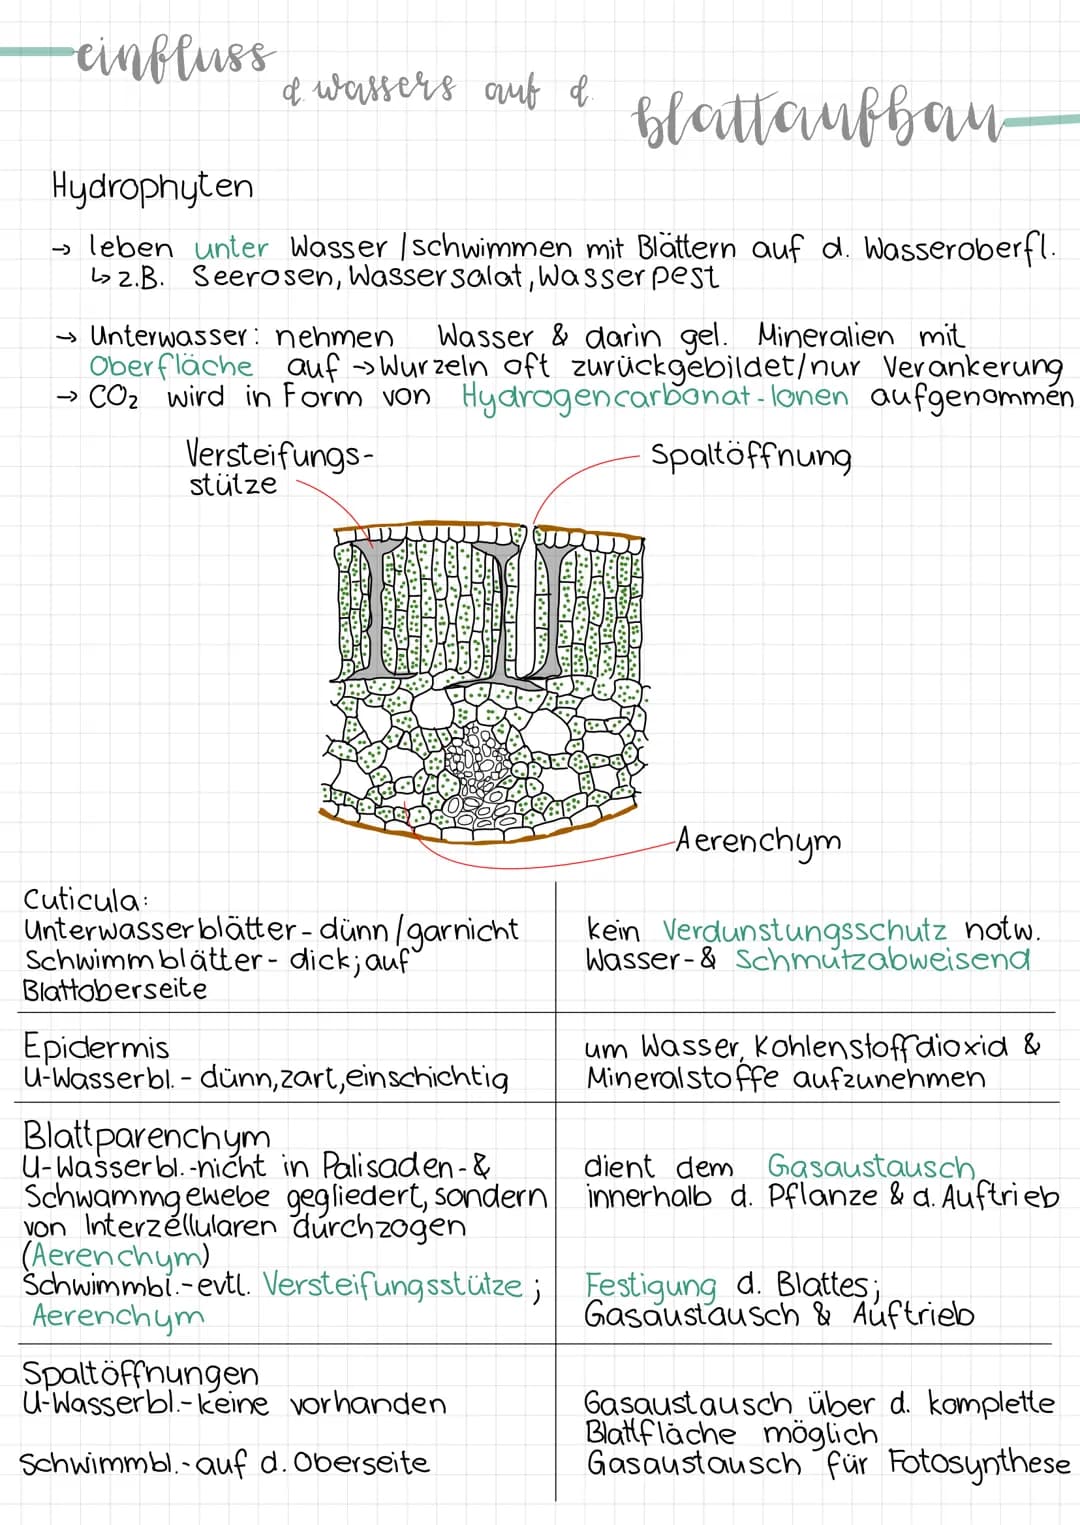 einfluss
d. wassers auf d.
blattaufbau
Hydrophyten
→ leben unter Wasser / schwimmen mit Blättern auf d. Wasseroberfl.
↳ z.B. Seerosen, Wassersalat, Wasserpest
→ Unterwasser: nehmen Wasser & darin gel. Mineralien mit
Oberfläche auf → Wurzeln oft zurückgebildet/nur Verankerung
→ CO₂ wird in Form von Hydrogencarbonat-Ionen aufgenommen
Versteifungs-
stütze
Spaltöffnung
Aerenchym
Cuticula:
Unterwasserblätter - dünn/garnicht
Schwimmblätter - dick; auf
Blattoberseite
kein Verdunstungsschutz notw.
Wasser- & Schmutzabweisend
Epidermis
U-Wasserbl. - dünn, zart, einschichtig
um Wasser, Kohlenstoffdioxid &
Mineralstoffe aufzunehmen
Blattparenchym
U-Wasserbl. - nicht in Palisaden- &
Schwammgewebe gegliedert, sondern
von Interzellularen durchzogen
(Aerenchym)
Schwimmbl. - evtl. Versteifungsstütze;
Aerenchym
dient dem Gasaustausch
innerhalb d. Pflanze & d. Auftrieb
Festigung d. Blattes;
Gasaustausch & Auftrieb
Spaltöffnungen
U-Wasserbl. - keine vorhanden
Schwimmbl. - auf d. Oberseite
Gasaustausch über d. komplette
Blattfläche möglich
Gasaustausch für Fotosynthese